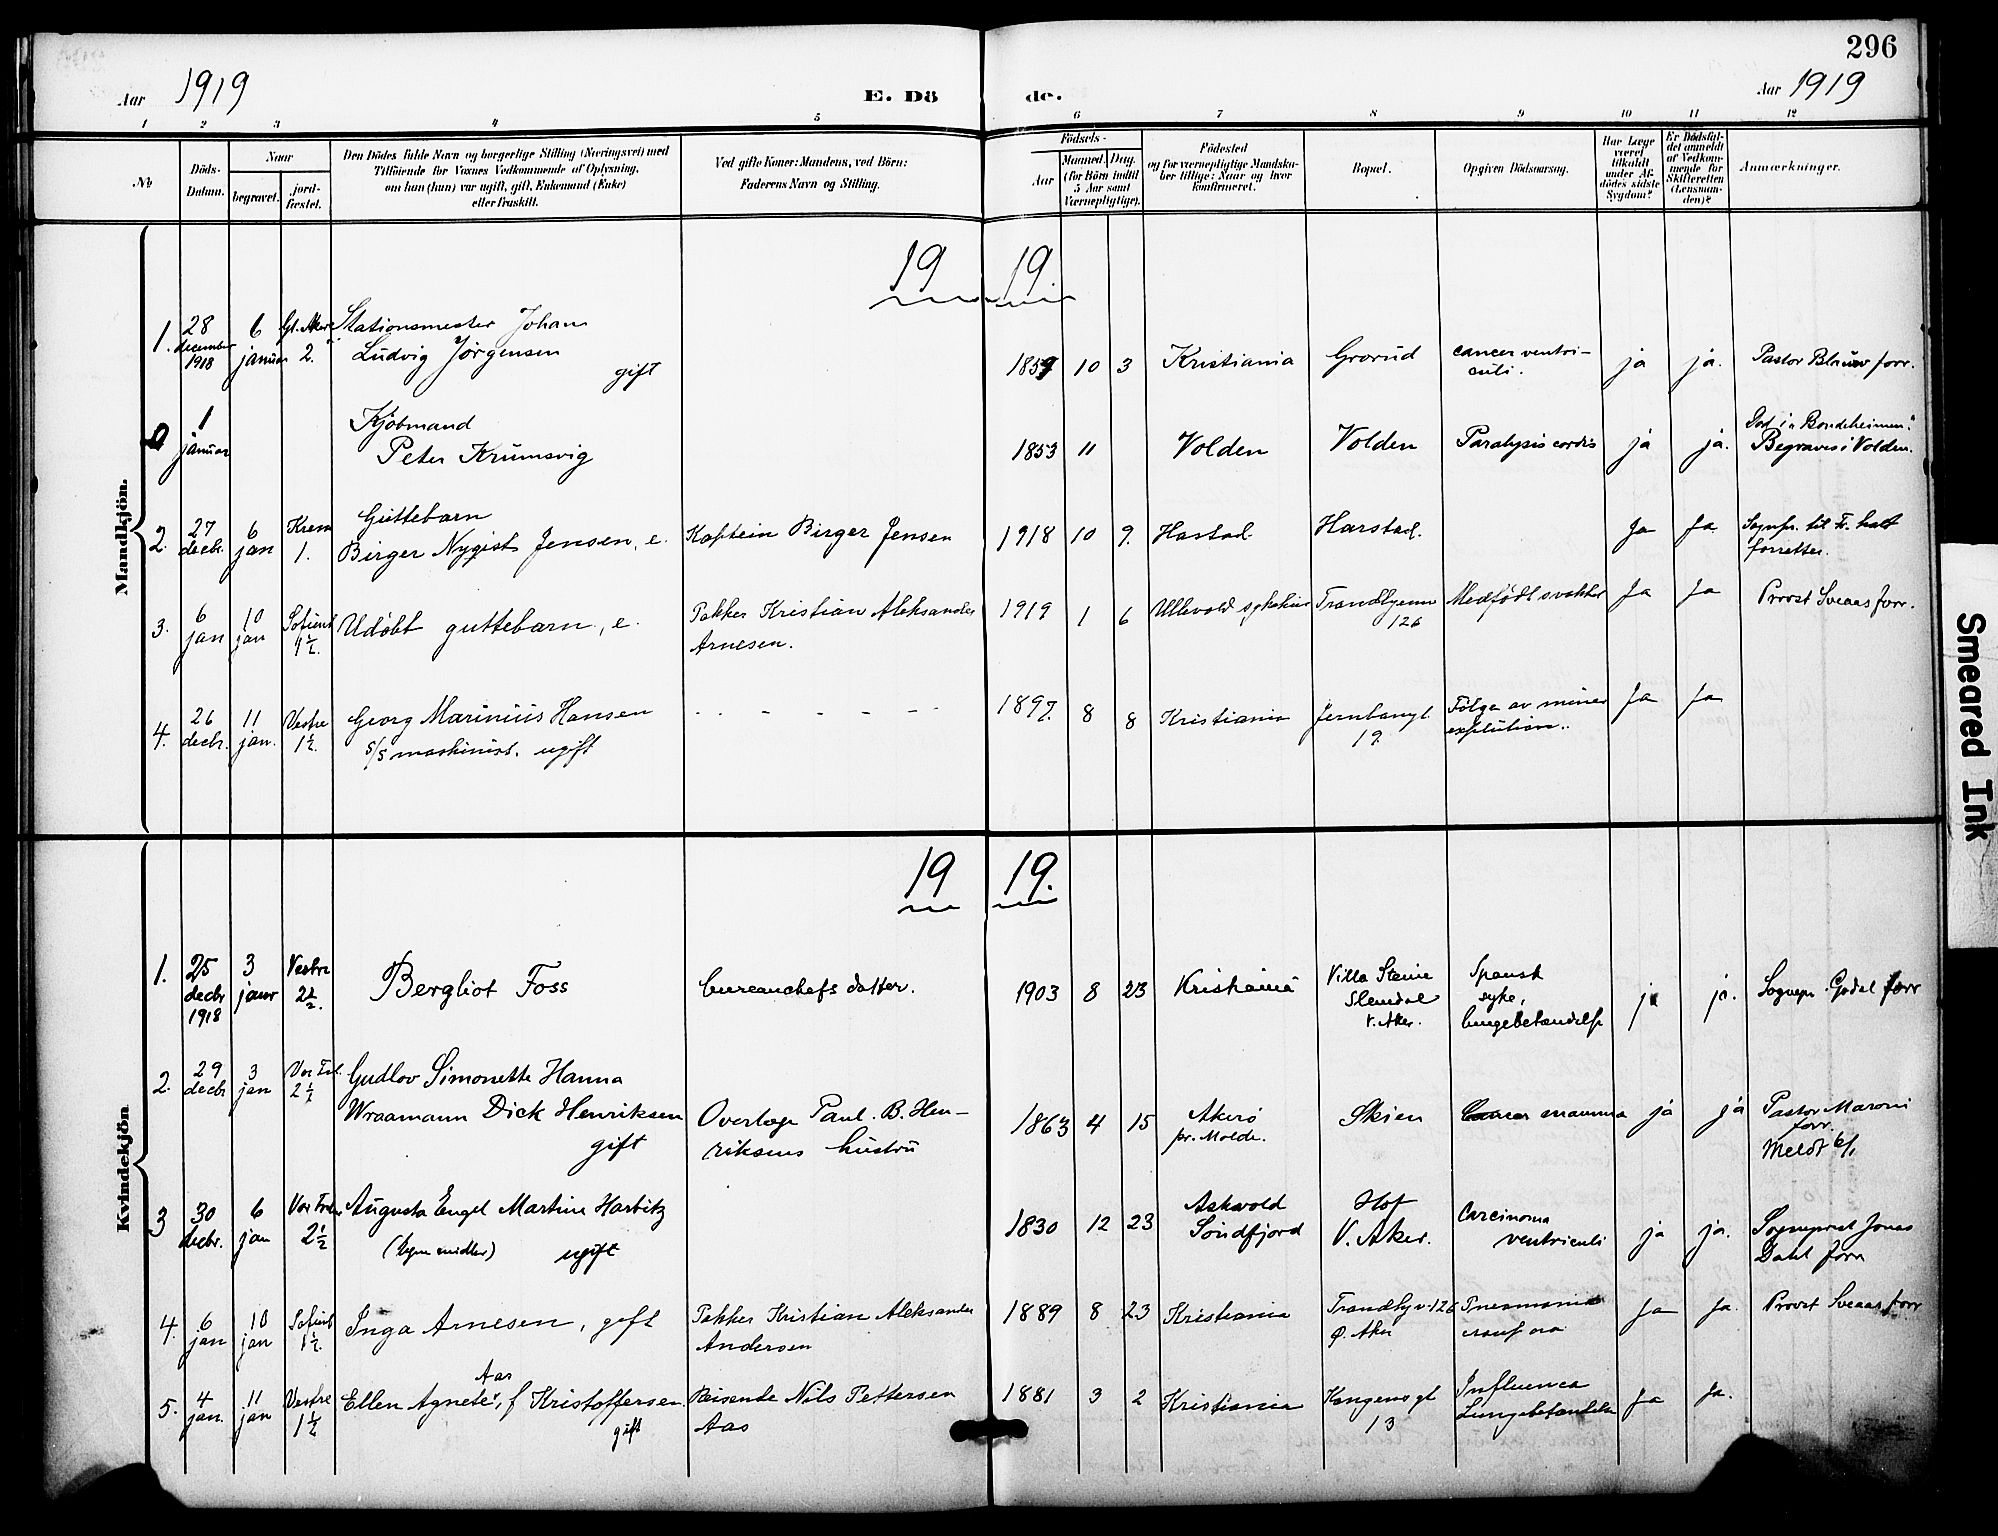 296
Aar 1919
E. Dö
de.
Aar 1919
1 2 3 4 5 6 7 8 9 10 11 12
No
Döds-
Datum.
Naar
begravet.
jord-
fæstet.
Den Dödes fulde Navn og borgerlige Stilling (Næringsvei) med
Tilföiende for Voxnes Vedkommende af Oplysning,
om han (hun) var ugift, gift, Enkemand (Enke)
eller fraskilt.
Ved gifte Koner: Mandens, ved Börn:
Faderens Navn og Stilling.
Födsels-
Aar
Maaned. Dag.
(for Börn indtil
5 Aar samt
Værnepligtige).
Födested
og for værnepligtige Mandska-
ber tillige: Naar og hvor
konfirmeret.
Bopæl.
Opgiven Dödsaarsag.
Har Læge
været
tilkaldt
under Af-
dödes sidste
Sygdom?
Er Dödsfal-
det anmeldt
af Vedkom-
mende for
Skifteretten
(Lensman-
den)?
Anmærkninger.
Mandkjön.
19 19
1. 28 december 1918
6 januar
Gl. Aker 2.
Stationsmester Johan
Ludvig Jørgensen
gift
1859 10 3
Kristiania
Grorud
cancer ventri-
culi.
ja
ja.
Pastor Blauw forr.
0
1 januar
Kjøbmand
Peter Krumsvig
1853 11
Volden
Volden
Paralysis cordis
ja
ja.
Død i "Bondeheimen".
Begraves i Volden.
2. 27 decbr.
6 jan
Krem 1.
Guttebarn
Birger Nygist Jensen, e.
Kaptein Birger Jensen
1918 10 9.
Harstad
Harstad.
Ja
Ja
Sognpr. til Tr. hatt
forrettes.
3. 6 jan
10 jan
Sofienb 1½.
Udøbt guttebarn, e.
Pakker Kristian Aleksander
Arnesen.
1919 1 6
Ullevold sykehus
Trondhjemv
126
Medfødt svakhet
Ja
Ja
Provst Sveaas forr.
4. 26 decbr.
11 jan.
Vestre 1½.
Georg Marinius Hansen
s/s maskinist. ugift
- - - - - -
1897. 8 8
Kristiania
Jernbangt.
19.
Følge av mine
explution..
Ja
Ja
Kvindekjön
19 19.
1. 25 decbr 1918
3 janr
Vestre 2½.
Bergliot Foss
bureauchefs datter.
1903 8 23
Kristiania
Villa Steine
Slemdal
V. Aker.
Spansk
syke,
lungebetændelse
ja
ja.
Sognepr. Godal forr
2. 29 decbr
3 jan
Vor Frl. 2½
Gudlov Simonette Hanna
Wraamann Dick Henriksen
gift
Overlæge Paul. B. Hen-
riksens hustru
1863 4 15
Akerø
pr. Molde.
Skien
Cancer mamma
ja
ja
Pastor Maroni
forr.
Meldt 6/1
3 30 decbr.
6 jan
Vor Frels 2½
Augusta Engel Martine Harbitz
(Egne midler) ugift
1830 12 23
Askvold
Søndfjord
Hof
V. Aker.
Carcinoma
ventriculi
ja
ja.
Sogneprest Jonas
Dahl forr
4. 6 jan
10 jan
Sofienb 1½.
Inga Arnesen, gift
Pakker Kristian Aleksander
Andersen
1889 8 23
Kristiania
Trondhjv. 126
Ø. Aker
Pneumonia
crouposa
Ja
Ja.
Provst Sveaas forr
5. 4 jan.
11 jan
Vestre 1½
Aas
Ellen Agnete, f Kristoffersen.
gift
Reisende Nils Pettersen
Aas
1881 3 2
Kristiania
Kongensgt
13
Influenca
Lungebetændelse
Ja
Ja.
Smeared Ink